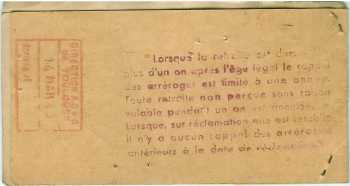 "Lorsque la retraite est
plus d'un an après l'âge légal le rappel
des arrérages est limité à une année.
Toute retraite non perçue sans raison
valable pendant un an est
Lorsque, sur réclamation elle est
il n'y a aucun rappel des arrérages
antérieurs à la date de réclamation."
DIRECTION